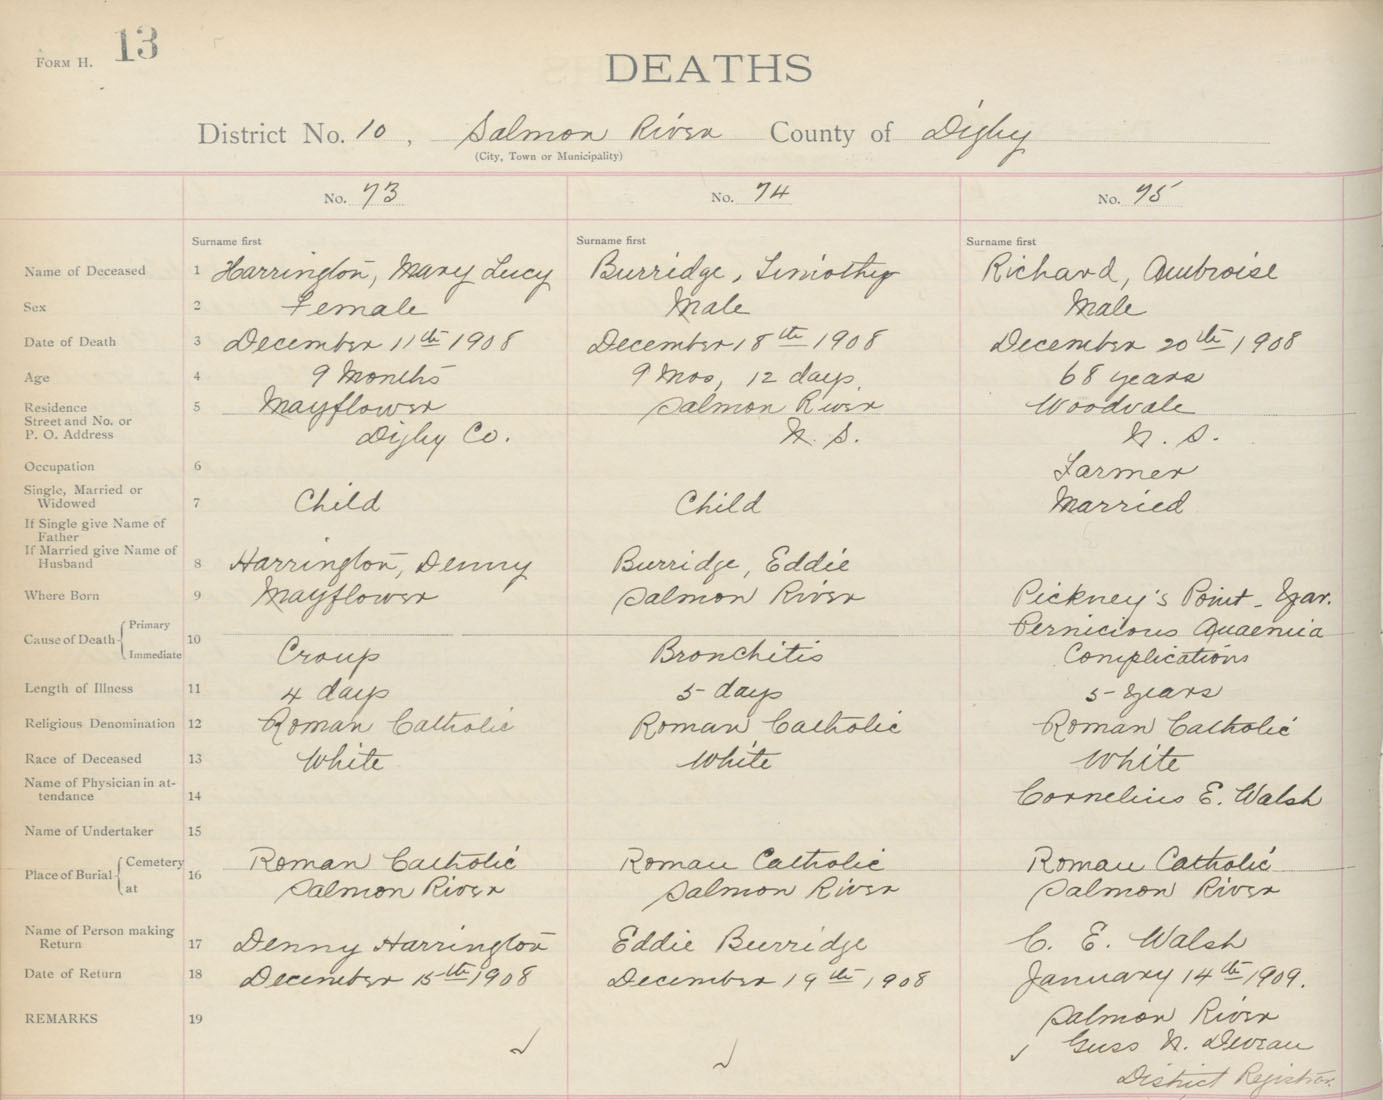 FORM H. 13
DEATHS
District No. 10, Salmon River County of Digby
(City, Town or Municipality)
No. 73 No. 74 No. 75
Surname first Surname first Surname first
Name of Deceased 1 Harrington, Mary Lucy Burridge, Timothy Richard, Ambroise
Sex 2 Female Male Male
Date of Death 3 December 11th 1908 December 18th 1908 December 20th 1908
Age 4 9 Months 9 Mos, 12 days. 68 years
Residence 5 Mayflower Salmon River Woodvale
Street and No. or
P. O. Address Digby Co. N. S. N. S.
Occupation 6 Farmer
Single, Married or
Widowed 7 Child Child Married
If Single give Name of
Father
If Married give Name of
Husband 8 Harrington, Denny Burridge, Eddie
Where Born 9 Mayflower Salmon River Pickney's Point - Yar.
Cause of Death Primary 10 Pernicious Anaemia
Immediate Croup Bronchitis Complications
Length of Illness 11 4 days 5 days 5 years
Religious Denomination 12 Roman Catholic Roman Catholic Roman Catholic
Race of Deceased 13 White White White
Name of Physician in at-
tendance 14 Cornelius E. Walsh
Name of Undertaker 15
Place of Burial Cemetery 16 Roman Catholic Roman Catholic Roman Catholic
at Salmon River Salmon River Salmon River
Name of Person making
Return 17 Denny Harrington Eddie Burridge C. E. Walsh
Date of Return 18 December 15th 1908 December 19th 1908 January 14th 1909.
REMARKS 19 Salmon River
Guss N. Deveau
District Registrar.